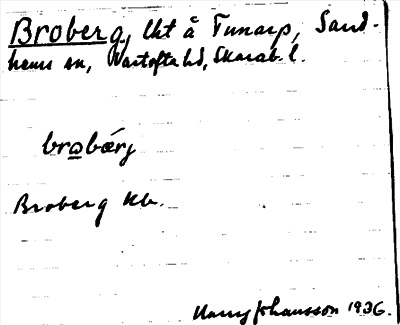 Broberg, lht å Tunarp, Sand-
hems sn, Vartofta hd, Skarab. l.
brobærj
Broberg Kb.
Harry Johansson 1936.